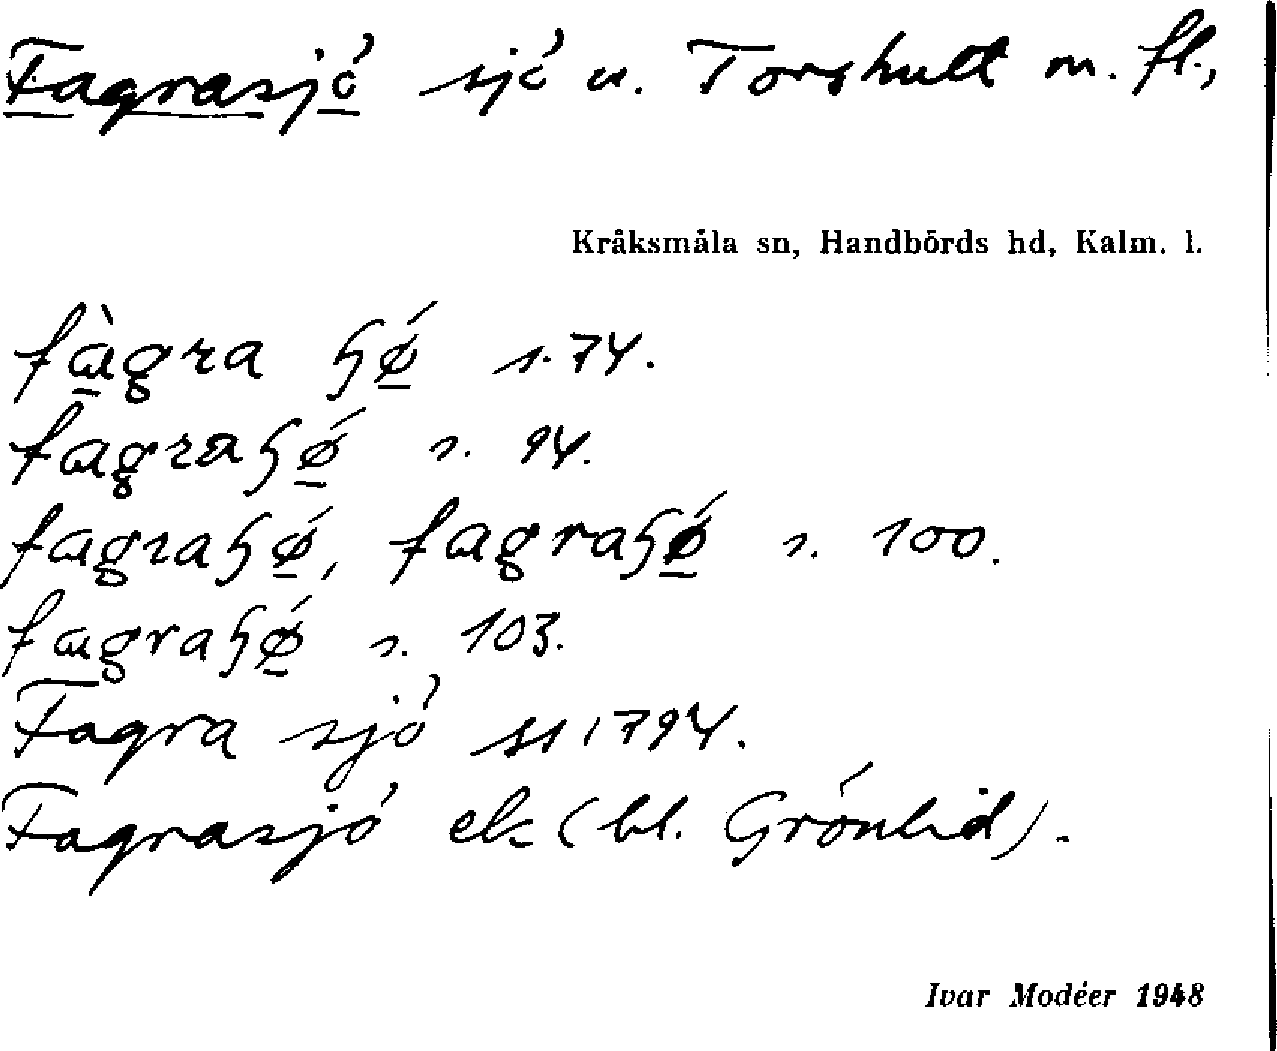 Fagrasjö sjö u. Torshult m. fl.,
Kråksmåla sn, Handbörds hd, Kalm. l.
fàgra ɧǿ s. 74.
fagraɧǿ s. 94.
fagraɧǿ, fagraɧǿ s. 100.
fagraɧǿ s. 103.
Fagra sjö 1794.
Fagrasjö ek (bl. Grönlid).
Ivar Modéer 1948